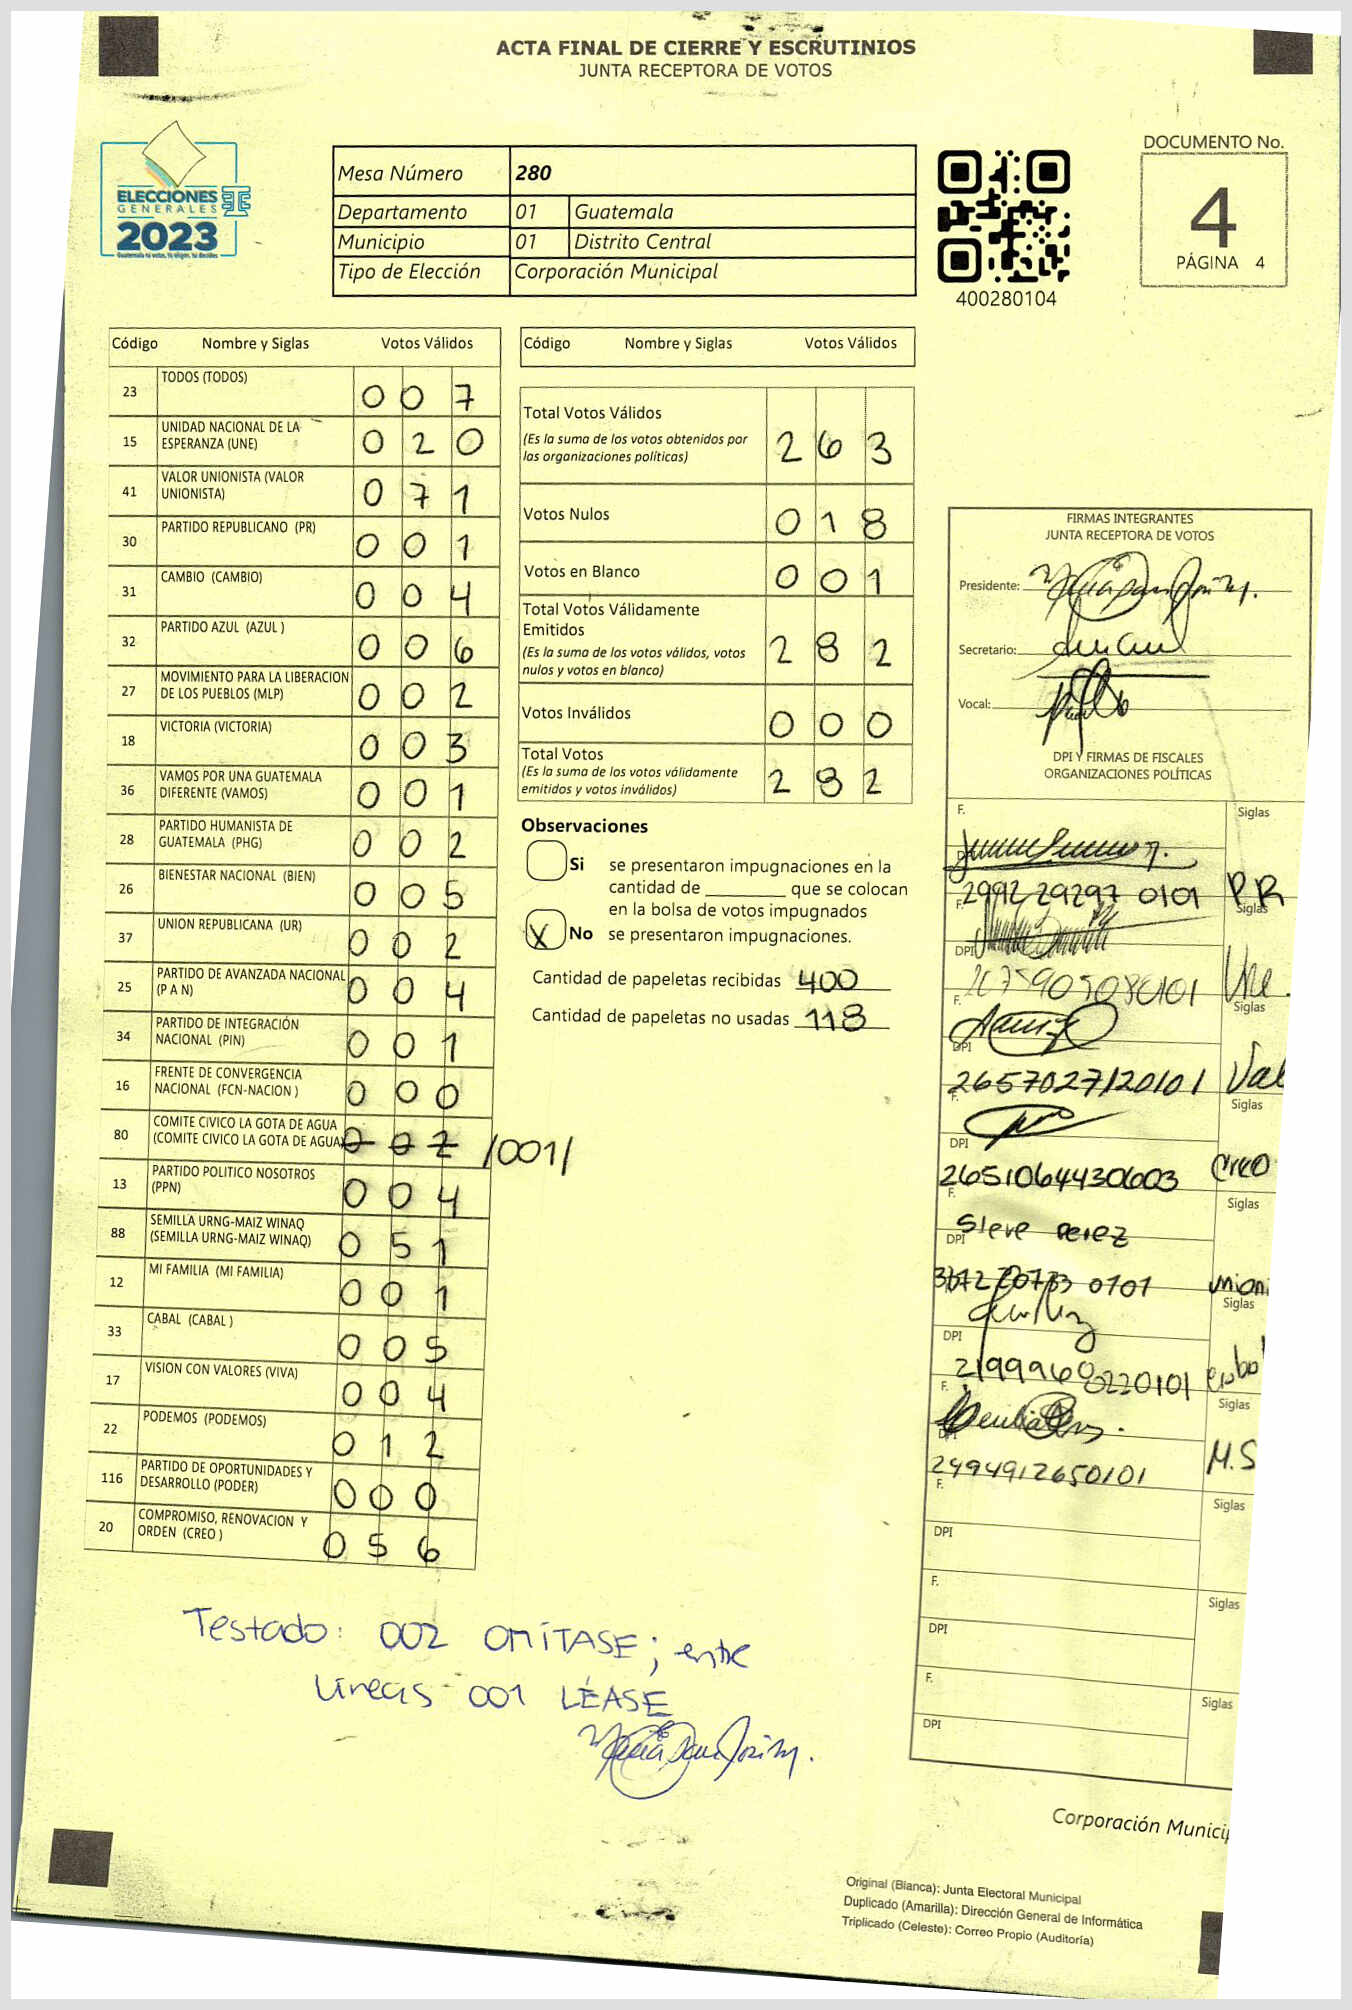 ACTA FINAL DE CIERRE Y ESCRUTINIOS
JUNTA RECEPTORA DE VOTOS
ELECCIONES
GENERALES
2023
Guatemala tú votas, Tú eliges, tú decides
Mesa Número 280
Departamento 01 Guatemala
Municipio 01 Distrito Central
Tipo de Elección Corporación Municipal
400280104
DOCUMENTO No.
4
PÁGINA 4
Código Nombre y Siglas Votos Válidos
23 TODOS (TODOS) 007
15 UNIDAD NACIONAL DE LA ESPERANZA (UNE) 020
41 VALOR UNIONISTA (VALOR UNIONISTA) 071
30 PARTIDO REPUBLICANO (PR) 001
31 CAMBIO (CAMBIO) 004
32 PARTIDO AZUL (AZUL ) 006
27 MOVIMIENTO PARA LA LIBERACION DE LOS PUEBLOS (MLP) 002
18 VICTORIA (VICTORIA) 003
36 VAMOS POR UNA GUATEMALA DIFERENTE (VAMOS) 001
28 PARTIDO HUMANISTA DE GUATEMALA (PHG) 002
26 BIENESTAR NACIONAL (BIEN) 005
37 UNION REPUBLICANA (UR) 002
25 PARTIDO DE AVANZADA NACIONAL (P A N) 004
34 PARTIDO DE INTEGRACIÓN NACIONAL (PIN) 001
16 FRENTE DE CONVERGENCIA NACIONAL (FCN-NACION ) 000
80 COMITE CIVICO LA GOTA DE AGUA (COMITE CIVICO LA GOTA DE AGUA) 002 /001/
13 PARTIDO POLITICO NOSOTROS (PPN) 004
88 SEMILLA URNG-MAIZ WINAQ (SEMILLA URNG-MAIZ WINAQ) 051
12 MI FAMILIA (MI FAMILIA) 001
33 CABAL (CABAL ) 005
17 VISION CON VALORES (VIVA) 004
22 PODEMOS (PODEMOS) 012
116 PARTIDO DE OPORTUNIDADES Y DESARROLLO (PODER) 000
20 COMPROMISO, RENOVACION Y ORDEN (CREO ) 056
Código Nombre y Siglas Votos Válidos
Total Votos Válidos 263
(Es la suma de los votos obtenidos por
las organizaciones políticas)
Votos Nulos 018
Votos en Blanco 001
Total Votos Válidamente
Emitidos 282
(Es la suma de los votos válidos, votos
nulos y votos en blanco)
Votos Inválidos 000
Total Votos 282
(Es la suma de los votos válidamente
emitidos y votos inválidos)
Observaciones
Si se presentaron impugnaciones en la
cantidad de ________ que se colocan
en la bolsa de votos impugnados
X No se presentaron impugnaciones.
Cantidad de papeletas recibidas 400
Cantidad de papeletas no usadas 118
FIRMAS INTEGRANTES
JUNTA RECEPTORA DE VOTOS
Presidente:
Secretario:
Vocal:
DPI Y FIRMAS DE FISCALES
ORGANIZACIONES POLÍTICAS
F. Siglas
2992 29297 0101 PR
F. Siglas
DPI
Une.
F. Siglas
DPI
2657027120101 Val
F. Siglas
DPI
2651064430603 Creo
F. Siglas
Steve Perez
DPI
0101 unioni
Siglas
DPI
F. Siglas
DPI
2494912650101 M.S
F. Siglas
DPI
F. Siglas
DPI
F. Siglas
DPI
Testado: 002 OMÍTASE; entre
líneas 001 LÉASE
Corporación Municip
Original (Blanca): Junta Electoral Municipal
Duplicado (Amarilla): Dirección General de Informática
Triplicado (Celeste): Correo Propio (Auditoría)